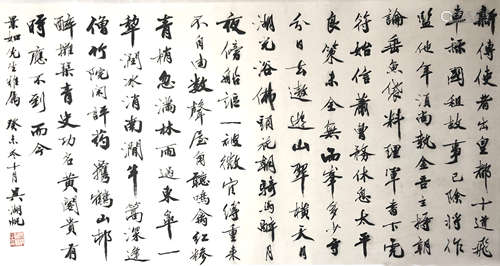 新傳使者出皇都十道飛
車詠國租故事已除將作
監他年須南執金吾主將朝
論垂魚儀料理軍書下虎
符始信蕭曹務休息太平
良策未全無西峯多少
分日去遨遊山翠橫天月
湖光浴佛頭花朝騎馬醉月
夜傍船謳一被微官縛重來
不自由數聲屋角聽鳴禽紅糝
青梢忽滿林雨過東皋一
犂潤冰消南澗半篙深逢
僧竹院閑評葯攜鶴山邨
醉撫琴青史功名黃閣貴有
時應不到而今
景如先生雅屬 癸未冬十月 吳湖帆